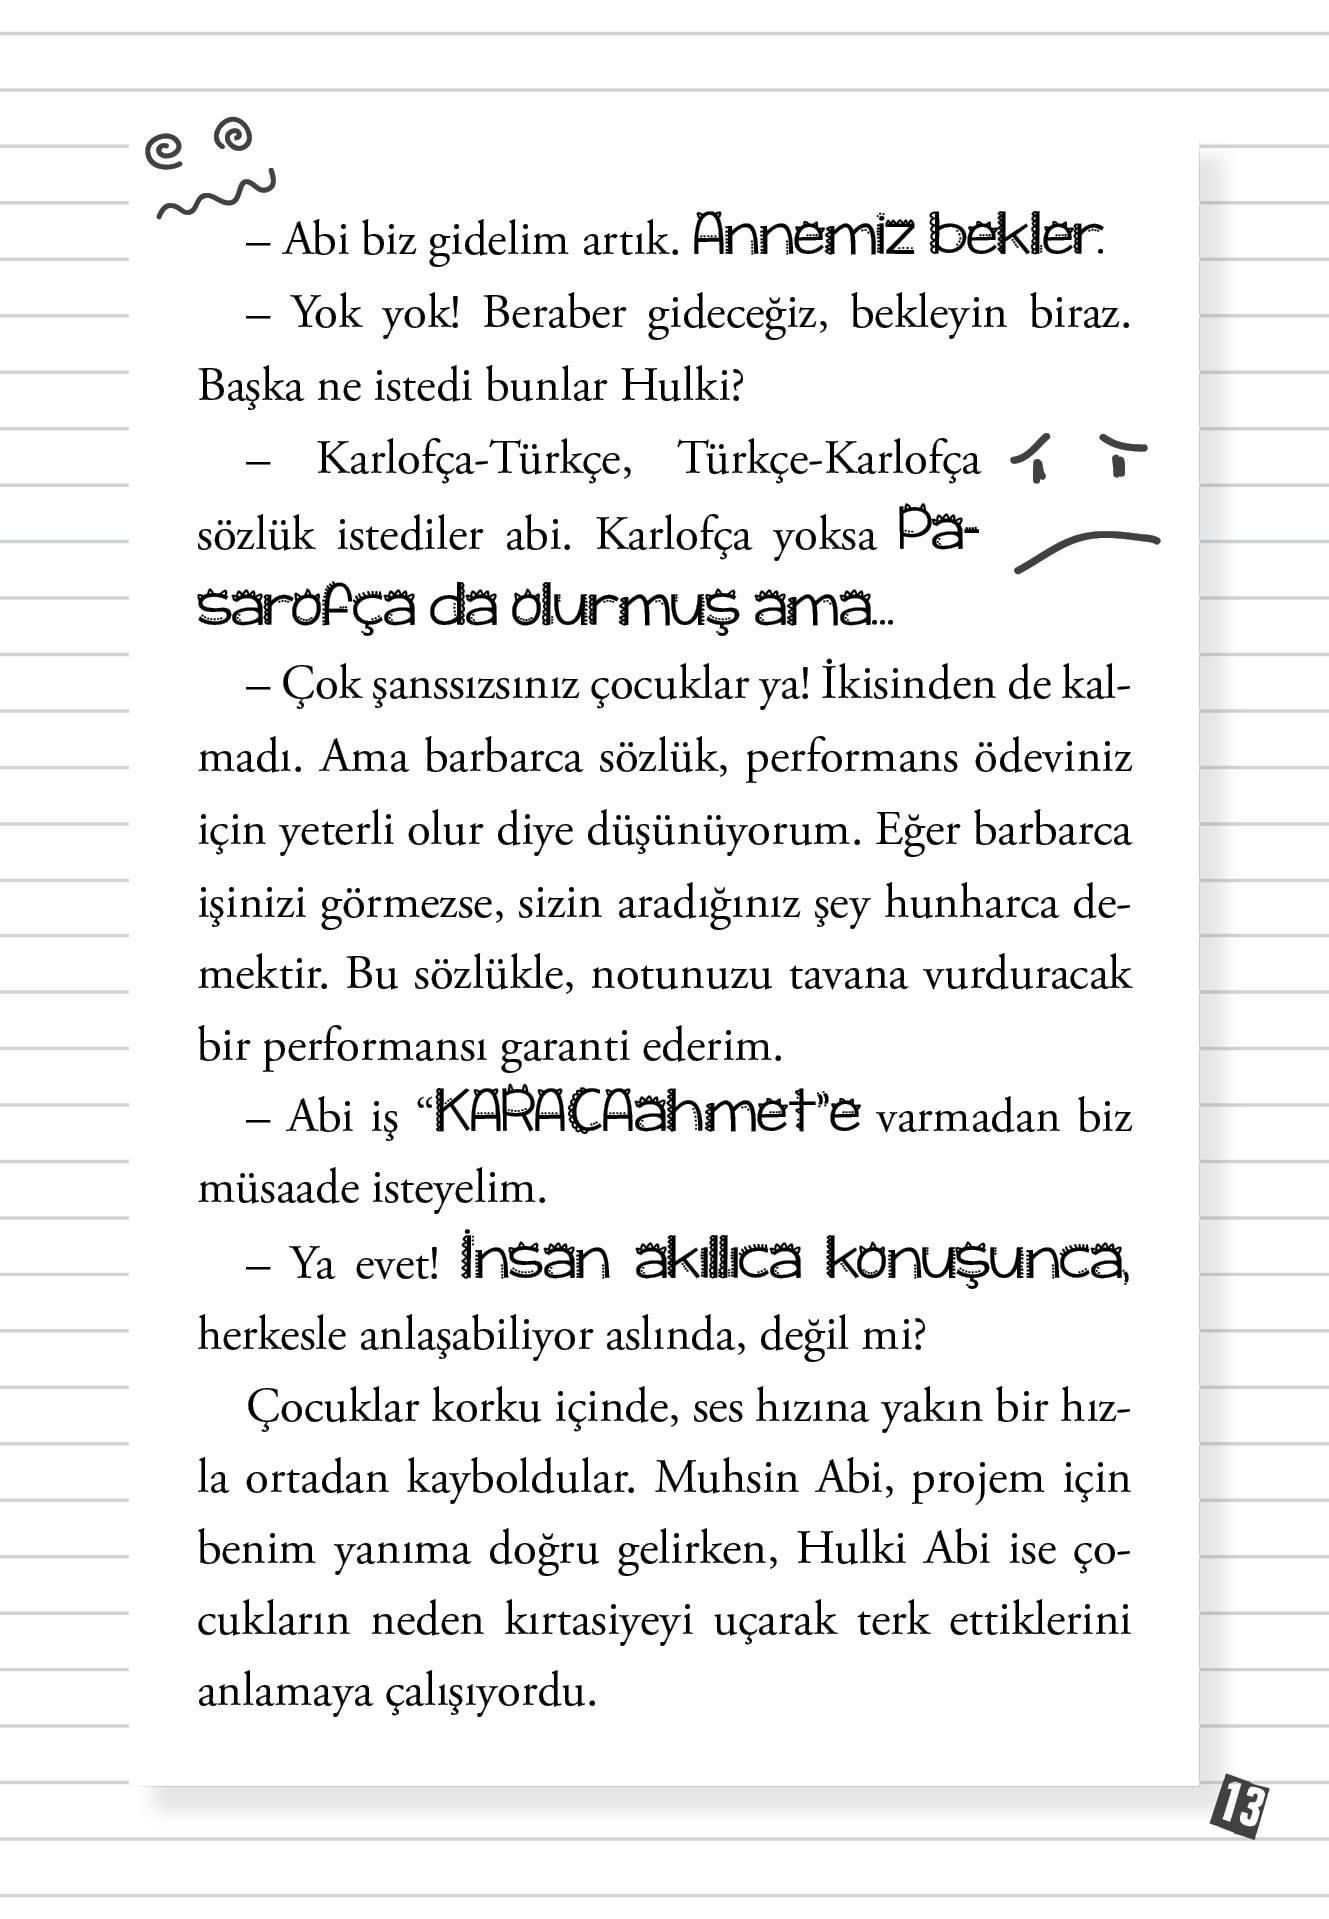 – Abi biz gidelim artık. Annemiz bekler.
– Yok yok! Beraber gideceğiz, bekleyin biraz.
Başka ne istedi bunlar Hulki?
– Karlofça-Türkçe, Türkçe-Karlofça
sözlük istediler abi. Karlofça yoksa Pa-
sarofça da olurmuş ama...
– Çok şanssızsınız çocuklar ya! İkisinden de kal-
madı. Ama barbarca sözlük, performans ödeviniz
için yeterli olur diye düşünüyorum. Eğer barbarca
işinizi görmezse, sizin aradığınız şey hunharca de-
mektir. Bu sözlükle, notunuzu tavana vurduracak
bir performansı garanti ederim.
– Abi iş “KARACAahmet”e varmadan biz
müsaade isteyelim.
– Ya evet! İnsan akıllıca konuşunca,
herkesle anlaşabiliyor aslında, değil mi?
Çocuklar korku içinde, ses hızına yakın bir hız-
la ortadan kayboldular. Muhsin Abi, projem için
benim yanıma doğru gelirken, Hulki Abi ise ço-
cukların neden kırtasiyeyi uçarak terk ettiklerini
anlamaya çalışıyordu.
13